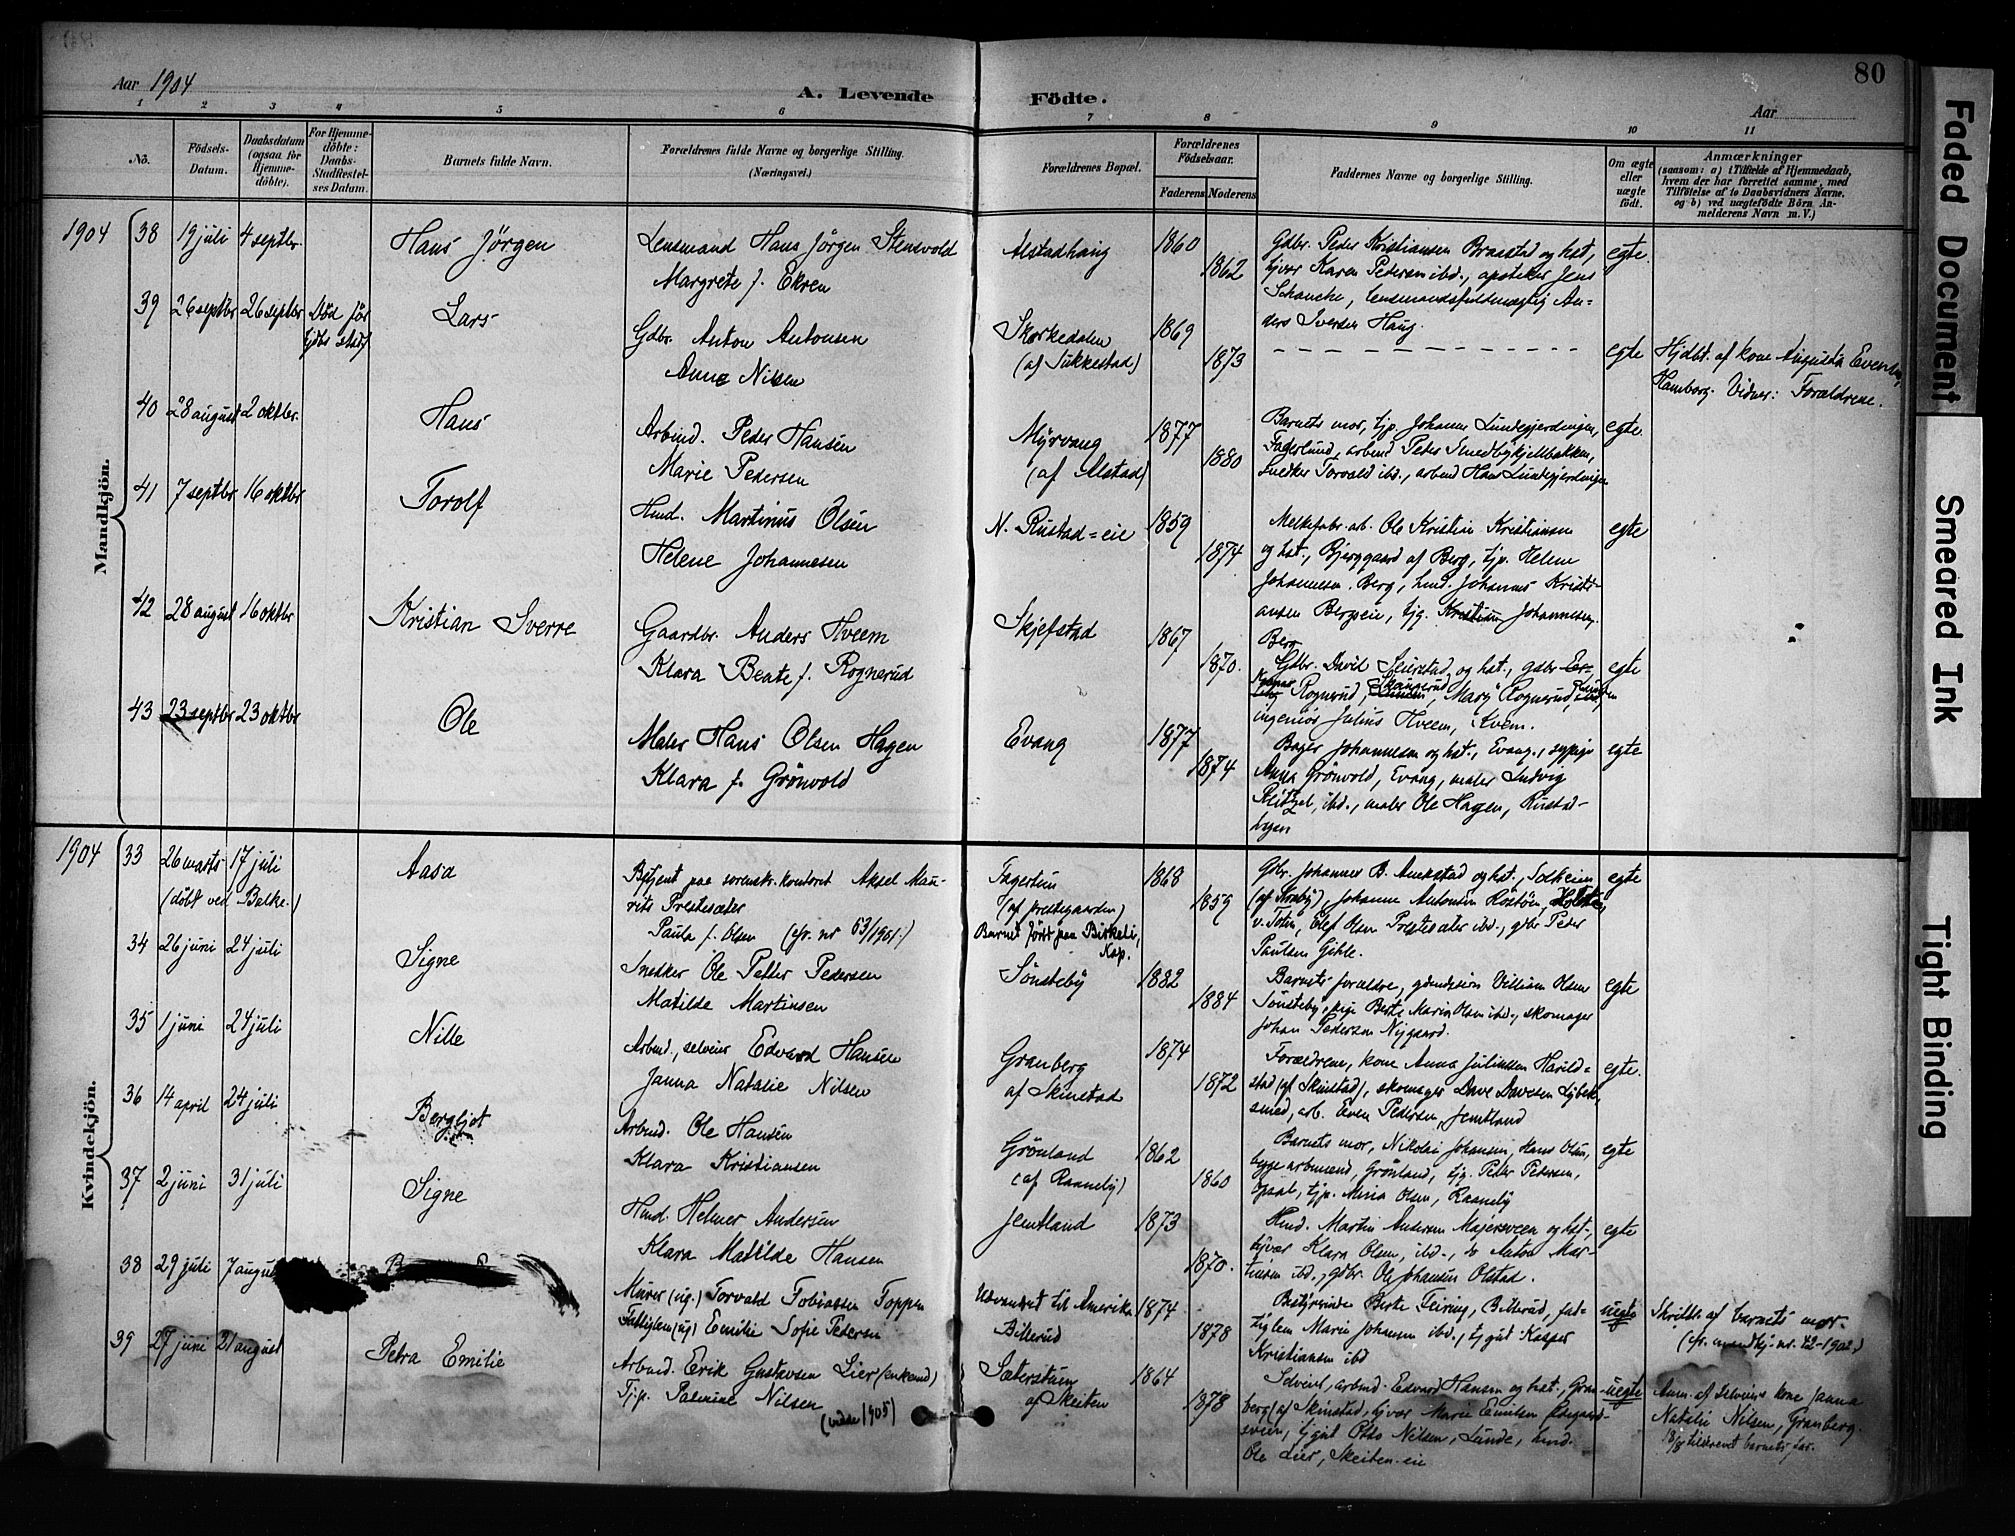 80
Aar 1904
A. Levende Födte.
Aar
1 2 3 4 5 6 7 8 9 10 11
No.
Födsels-Datum.
Daabsdatum (ogsaa for Hjemme-döbte).
For Hjemme-döbte: Daabs-Stadfæstel-ses Datum.
Barnets fulde Navn.
Forældrenes fulde Navne og borgerlige Stilling. (Næringsvei.)
Forældrenes Bopæl.
Forældrenes Födselsaar.
Faderens Moderens
Faddernes Navne og borgerlige Stilling.
Om ægte eller uægte födt.
Anmærkninger
(saasom: a) i Tilfælde af Hjemmedaab,
hvem der har forrettet samme, med
Tilföielse af to Daabsvidners Navne.
og b) ved uægtefödte Börn An-
melderens Navn m. V.)
Mandkjön.
1904 38 19 juli 4 septbr. Hans Jörgen
Lensmand Hans Jörgen Stensvold
Margrete f. Ekren
Alstadhaug 1860 1862
Gdbr. Peder Kristiansen Braastad og hst,
tjvar Karen Pedersen ibd., apoteker Jens
Schanche, lensmandsfuldmægtig An-
ders Iversen Haug.
egte.
39 26 septbr 26 septbr Död för Lars
Gdbr. Anton Antonsen
Anne Nilsen
Skorkedalen
(af Sukkestad)
1869 1873
egte
Hjdbt. af kone Augusta Evensen,
Hamborg. Vidner: Forældrene.
40 28 august 2 oktbr. Hans
Arbmd. Peder Hansen
Marie Pedersen
Myrvang
(af Alstad)
1877 1880
Barnets mor, tjp. Johanne Lundegjerdingen,
Faderlund, arbmd Peder Smedbykjelbakken,
snedker Torvald ibd., arbmd Hans Lundegjerdingen
egte.
41 7 septbr 16 oktbr Torolf
Hmd. Martinus Olsen
Helene Johannesen
N. Rustad=eie 1859 1874
Melkefabr. arb. Ole Kristian Kristiansen
og hst., Bjerggaard af Berg, tjp. Helene
Johannesen Berg, hmd. Johannes Kristi-
ansen Bergseie, tjg. Kristian Johannesen,
Berg
egte
42 28 august 16 oktbr. Kristian Sverre
Gaardbr. Anders Hveem
Klara Beate f. Rognerud
Skjefstad 1867 1870.
Gdbr. David Seierstad og hst., gdbr
Rognerud, Skaugerud, Mary Rognerud,
ingeniör Julius Hveem, Kvem.
egte
43 23 septbr 23 oktbr Ole
Maler Hans Olsen Hagen
Klara f. Grönvold
Evang 1877 1874
Bager Johannesen og hst., Evang, sypige
Anna Grönvold, Evang, maler Ludvig
ibd., maler Ole Hagen, Rustad-
hagen
egte
Kvindekjön.
1904 33 26 marts 17 juli
(döbt ved Balke.)
Aasa
Betjent paa sorenskr.kontoret Aksel Mau-
rits Prestesæter
Paula f. Olsen (cfr. nr 63/1901.)
Fagertun
(af prestegaarden)
Barnet födt paa Birkeli, Kap.
1868 1859
Gdbr. Johannes B. Anekstad og hst., Solheim
(af Kraby), Johanne Antonsen
v. Toten, Olef Olsen Prestesæter ibd., gdbr Peder
Paulsen Gihle.
egte
34 26 juni 24 juli Signe
Snedker Ole Petter Pedersen
Matilde Martinsen
Sönsteby 1882 1884
Barnets forældre, gdmandssön Villiam Olsen
Sönsteby, pige Berte Marie Olsen ibd., skomager
Johan Pedersen Nygaard.
egte
35 1 juni 24 juli Nille
Arbmd., selveier Edvard Hansen
Janna Natalie Nilsen
Granberg
af Skinstad
1874 1872
Forældrene, kone Anna Juliussen Harild-
stad (af Skinstad), skomager Dave Davesen
smed, arb. Even Pedersen, Jemtland
egte.
36 14 april 24 juli Bergljot
Arbmd. Ole Hansen
Klara Kristiansen
Grönland
(af Raaneby)
1862 1860
Barnets mor, Nikolai Johansen, Hans Olsen,
byggearbmænd, Grönland, tjg. Peder Pedersen,
Opsal, tjp. Mina Olsen, Raaneby
egte
37 2 juni 31 juli Signe
Hmd. Helmer Andersen
Klara Matilde Hansen
Jemtland 1873 1870.
Hmd. Martin Andersen Majersveen og hst.,
tjvar Klara Olsen, ibd., do Anton Mar-
tinsen ibd., gdbr. Ole Johansen Olstad.
egte
38 29 juli 7 august
Murer (ug.) Torvald Tobiassen Toppen
Fattiglem (ug) Emilie Sofie Pedersen
Udvandret til Amerika
Billerud
1874 1878
Bestyrerinde Berte Feiring, Billerud, fat-
tiglem Marie Johansen ibd., tjgut Kasper
Kristiansen ibd
uegte
Skriftl. af barnets mor.
(cfr. mandkj. nr. 42-1902.)
39 27 juni 21 august Petra Emilie
Arbmd. Erik Gustavsen Lier (enkemd)
Tjp. Palmine Nilsen
(viede 1905)
Sæterstuen
af Skeiten
1864 1878
Selveier, arbmd. Edvard Hansen og hst., Gran-
berg (af Skinstad, tjvar Marie Emilsen
sveen, tjgut Otto Nilsen, Lunde, hmd.
Ole Lier, Skeiten-eie
uegte
Anm. af selveiers kone Janna
Natalie Nilsen, Granberg.
18/8 tilskrevet barnets far.
Faded Document
Smeared Ink
Tight Binding